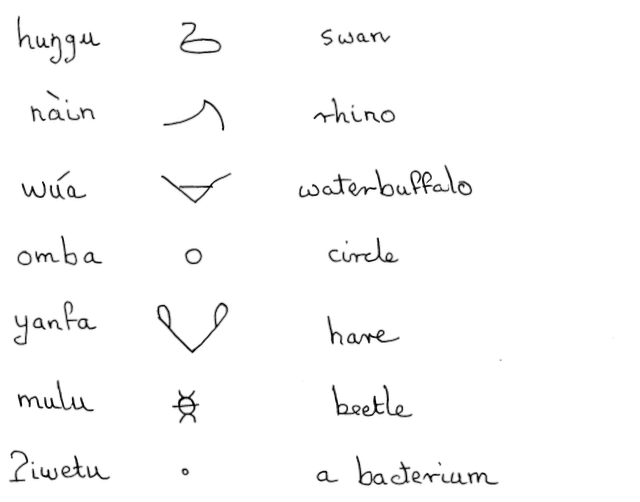 huŋgu swan
nàin rhino
wúa waterbuffalo
omba circle
yanfa hare
mulu beetle
ʔiwetu a bacterium